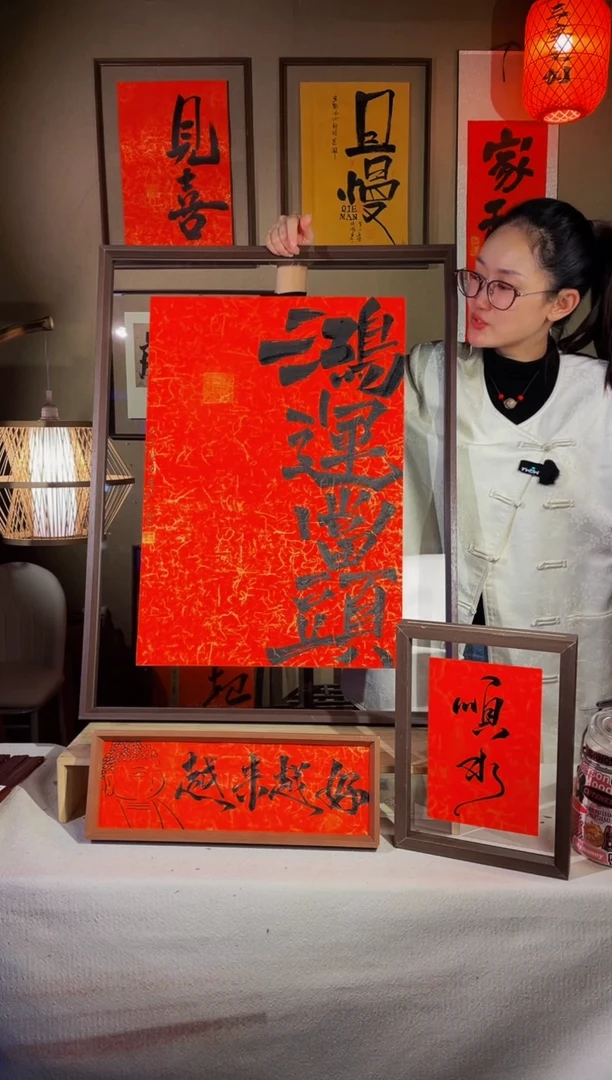 見喜
且慢
QIE
MAN
家
鴻運當頭
越来越好
順水
起